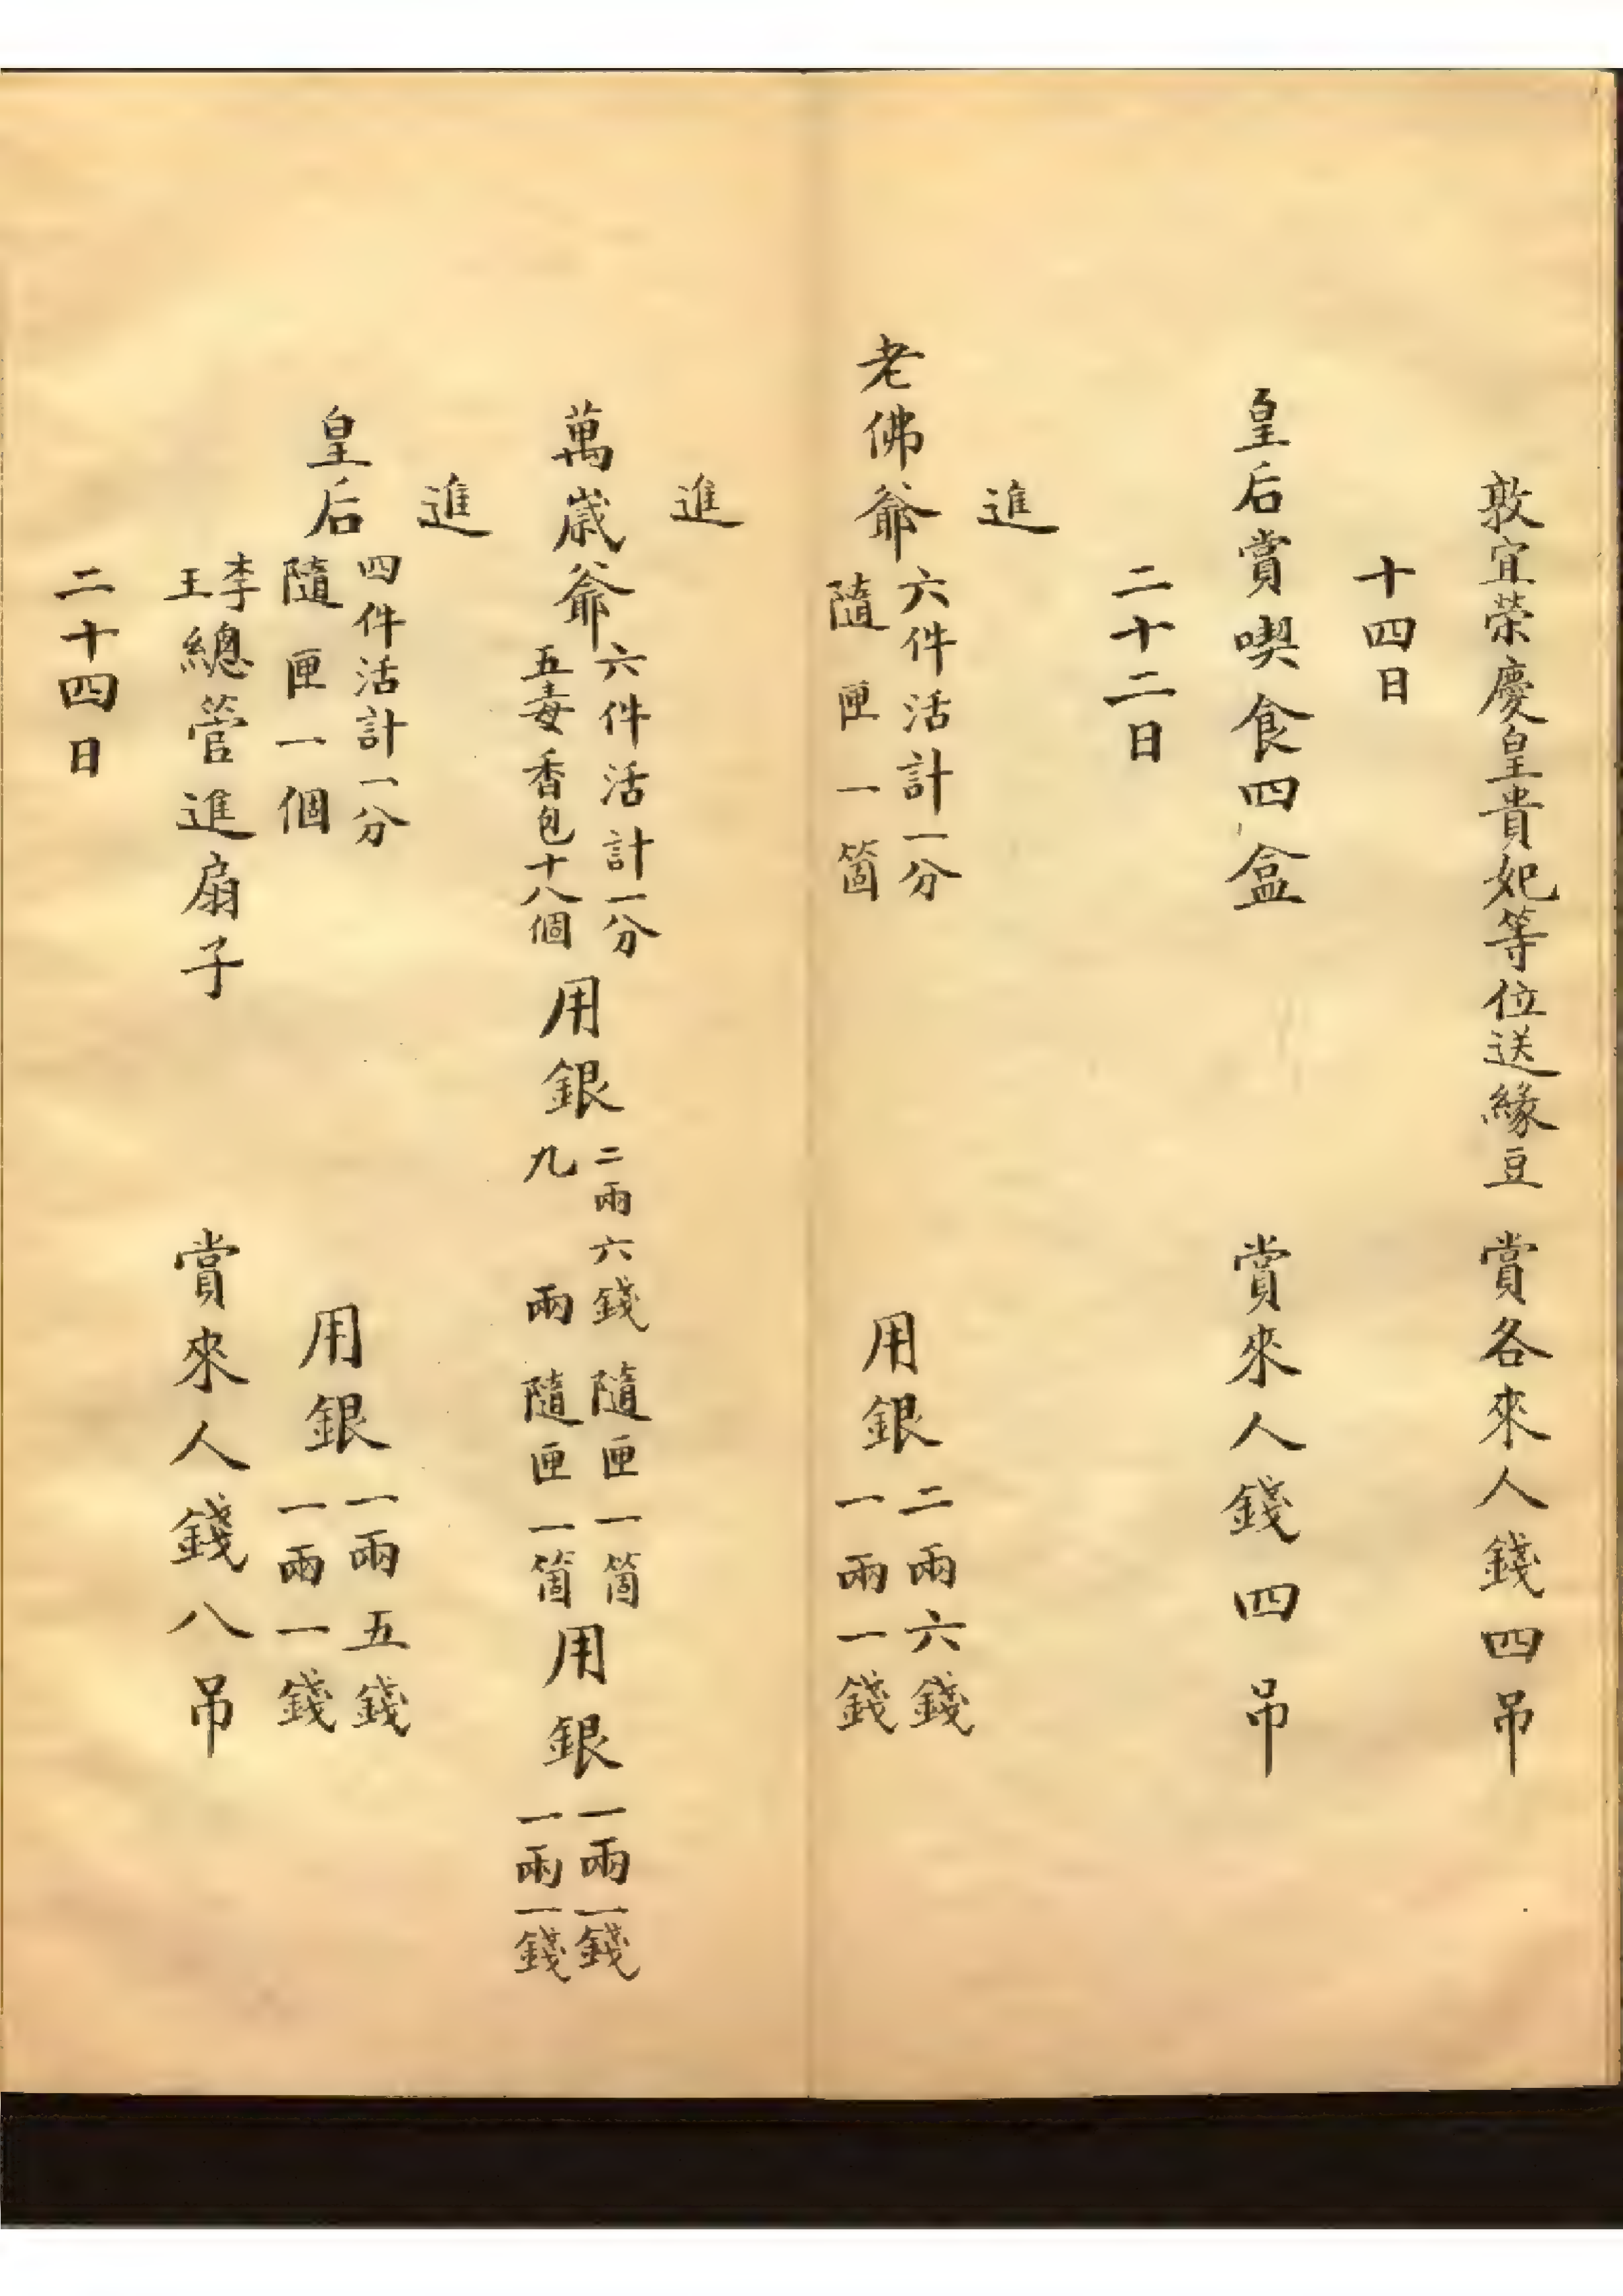 敦宜榮慶皇貴妃等位送緣豆 賞各來人錢四吊
十四日
皇后賞喫食四盒 賞來人錢四吊
二十二日
進
老佛爺 六件活計一分 隨匣一箇 用銀 二兩六錢 一兩一錢
進
萬歲爺 六件活計一分 五毒香包十八個 用銀 二兩六錢 九兩 隨匣一箇 隨匣一箇 用銀 一兩一錢 一兩一錢
進
皇后 四件活計一分 隨匣一個 用銀 一兩五錢 一兩一錢
李王總管進扇子 賞來人錢八吊
二十四日